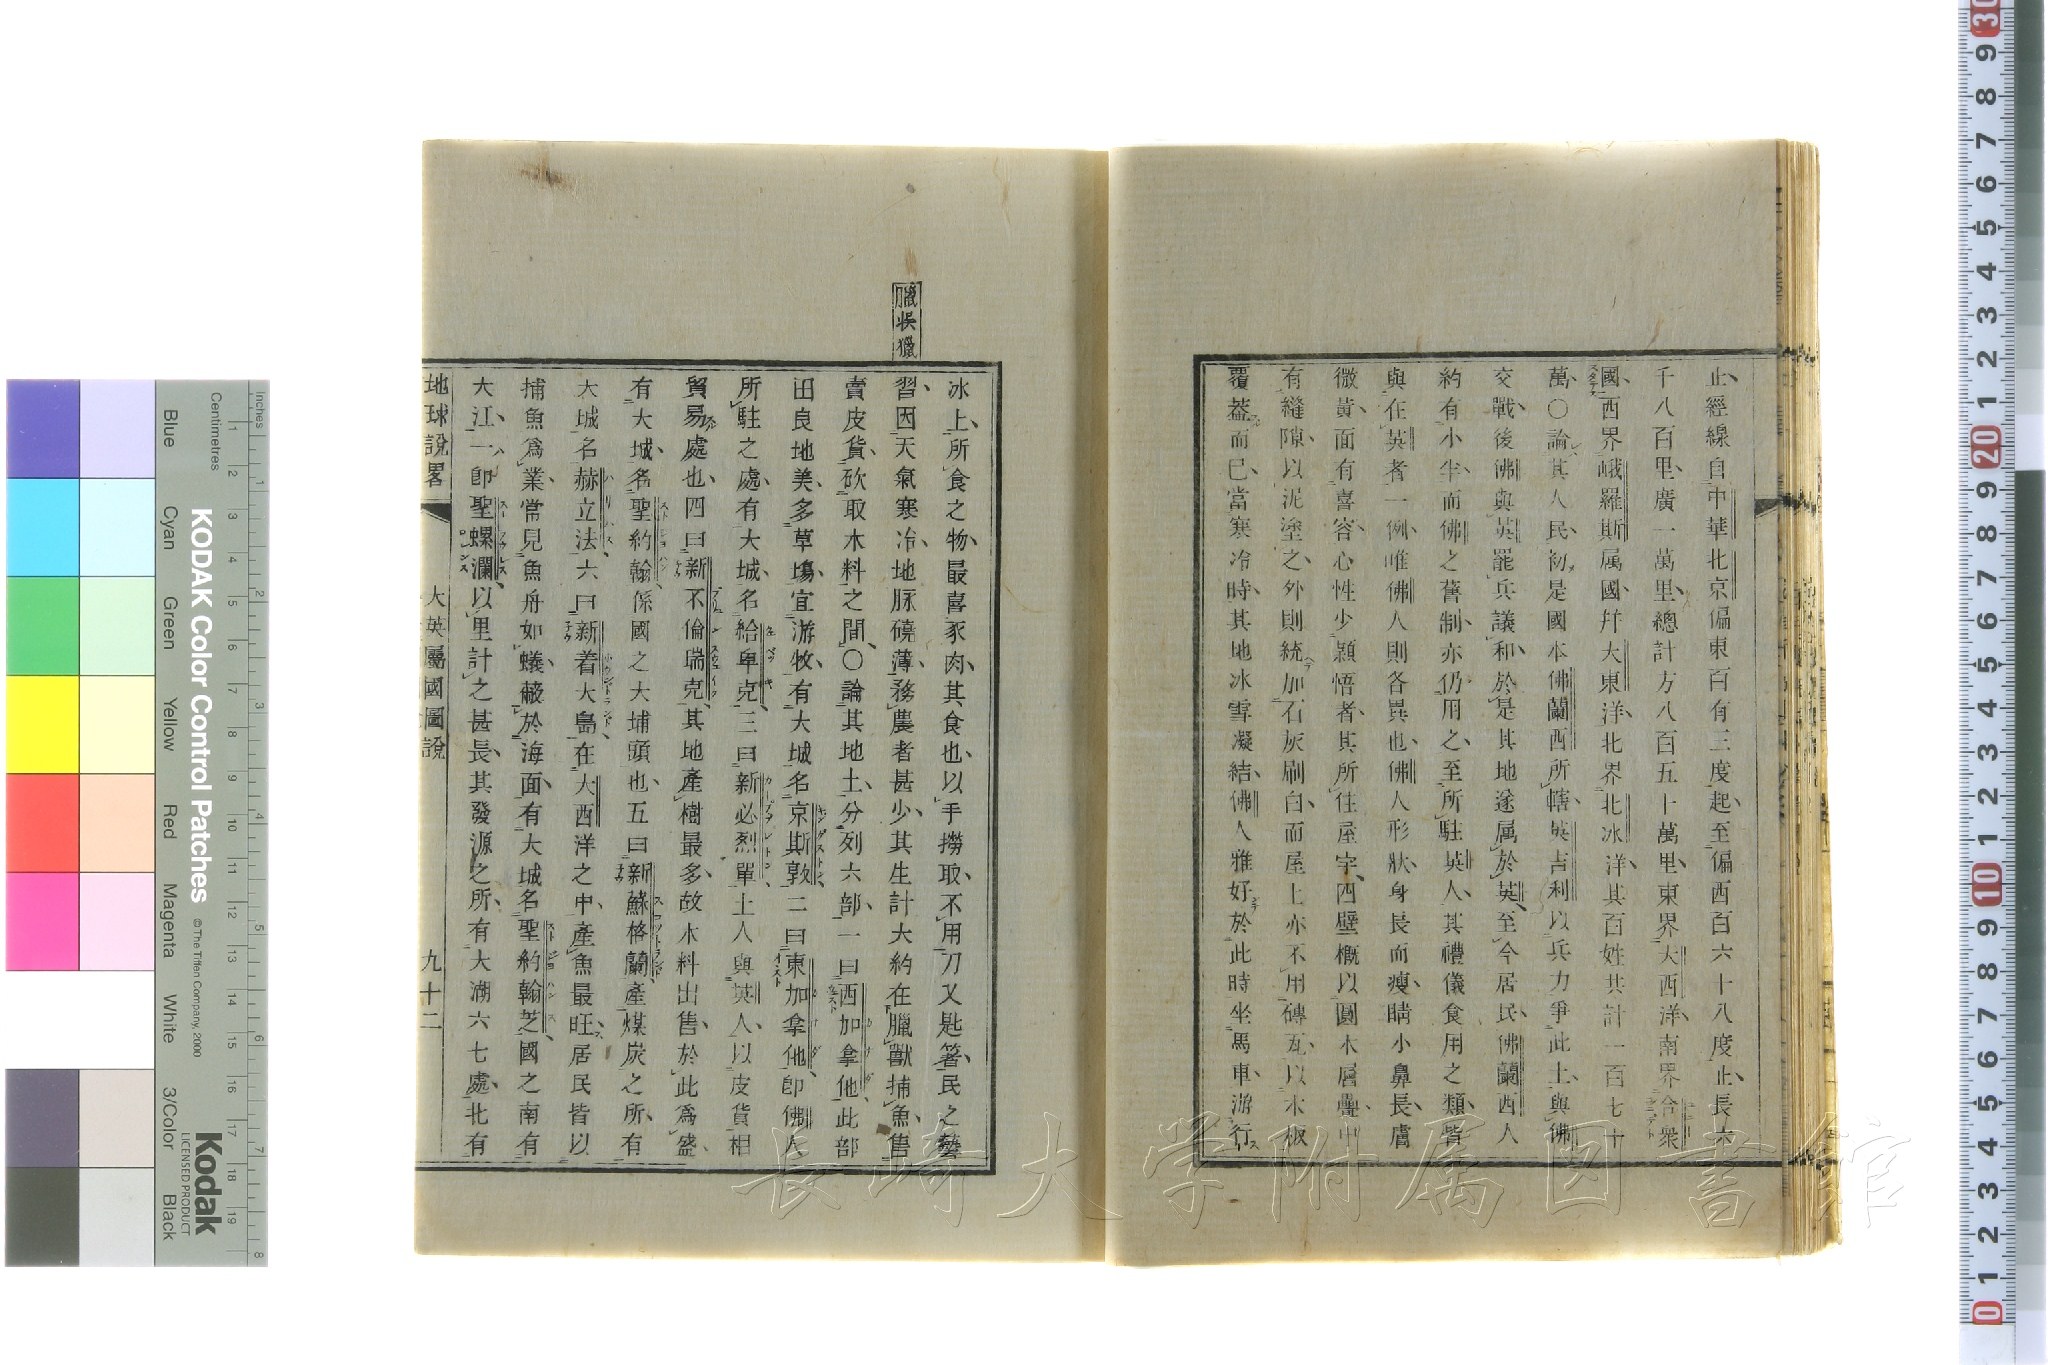 止經線自中華北京偏東百有三度起至偏西百六十八度止長六
千八百里廣一萬里總計方八百五十萬里東界大西洋南界合衆
國西界峨羅斯属國幷大東洋北界北冰洋其百姓共計一百七十
萬〇論其人民初是國本佛蘭西所轄英吉利以兵力爭此土與佛
交戰後佛與英罷兵議和於是其地遂属於英至今居民佛蘭西人
約有小半而佛之舊制亦仍用之至所駐英人其禮儀食用之類皆
與在英者一例唯佛人則各異也佛人形狀身長而瘦睛小鼻長膚
微黃面有喜容心性少穎悟者其所住屋宇四壁概以圓木層疊中
有縫隙以泥塗之外則統加石灰刷白而屋上亦不用磚瓦以木板
覆葢而已當寒冷時其地冰雪凝結佛人雅好於此時坐馬車游行
臘恐獵
冰上所食之物最喜豕肉其食也以手撈取不用刀叉匙箸民之藝
習因天氣寒冷地脉磽薄務農者甚少其生計大約在臘獸捕魚售
賣皮貨砍取木料之間〇論其地土分列六部一曰西加拿他此部
田良地美多草塲宜游牧有大城名京斯敦二曰東加拿他卽佛人
所駐之處有大城名給卑克三曰新必烈單土人與英人以皮貨相
貿易處也四曰新不倫瑞克其地產樹最多故木料出售於此爲盛
有大城名聖約翰係國之大埔頭也五曰新蘇格蘭產煤炭之所有
大城名赫立法六曰新着大島在大西洋之中產魚最旺居民皆以
捕魚爲業常見魚舟如蟻蔽於海面有大城名聖約翰芝國之南有
大江一卽聖螺瀾以里計之甚長其發源之所有大湖六七處北有
地球說畧 大英屬國圖說 九十二
長崎大学附属図書館
KODAK Color Control Patches
© The Tiffen Company, 2000
Kodak
LICENSED PRODUCT
Inches
Centimetres
Blue
Cyan
Green
Yellow
Red
Magenta
White
3/Color
Black